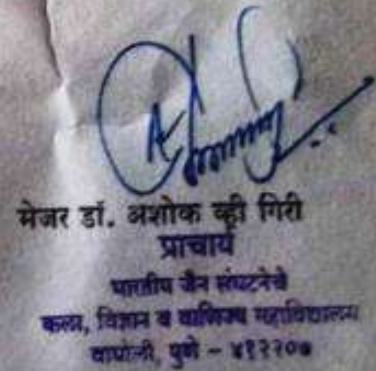 मेजर डॉ. अशोक व्ही गिरी
प्राचार्य
भारतीय जैन संघटनेचे
कला, विज्ञान व वाणिज्य महाविद्यालय
वाघोली, पुणे - ४१२२०७